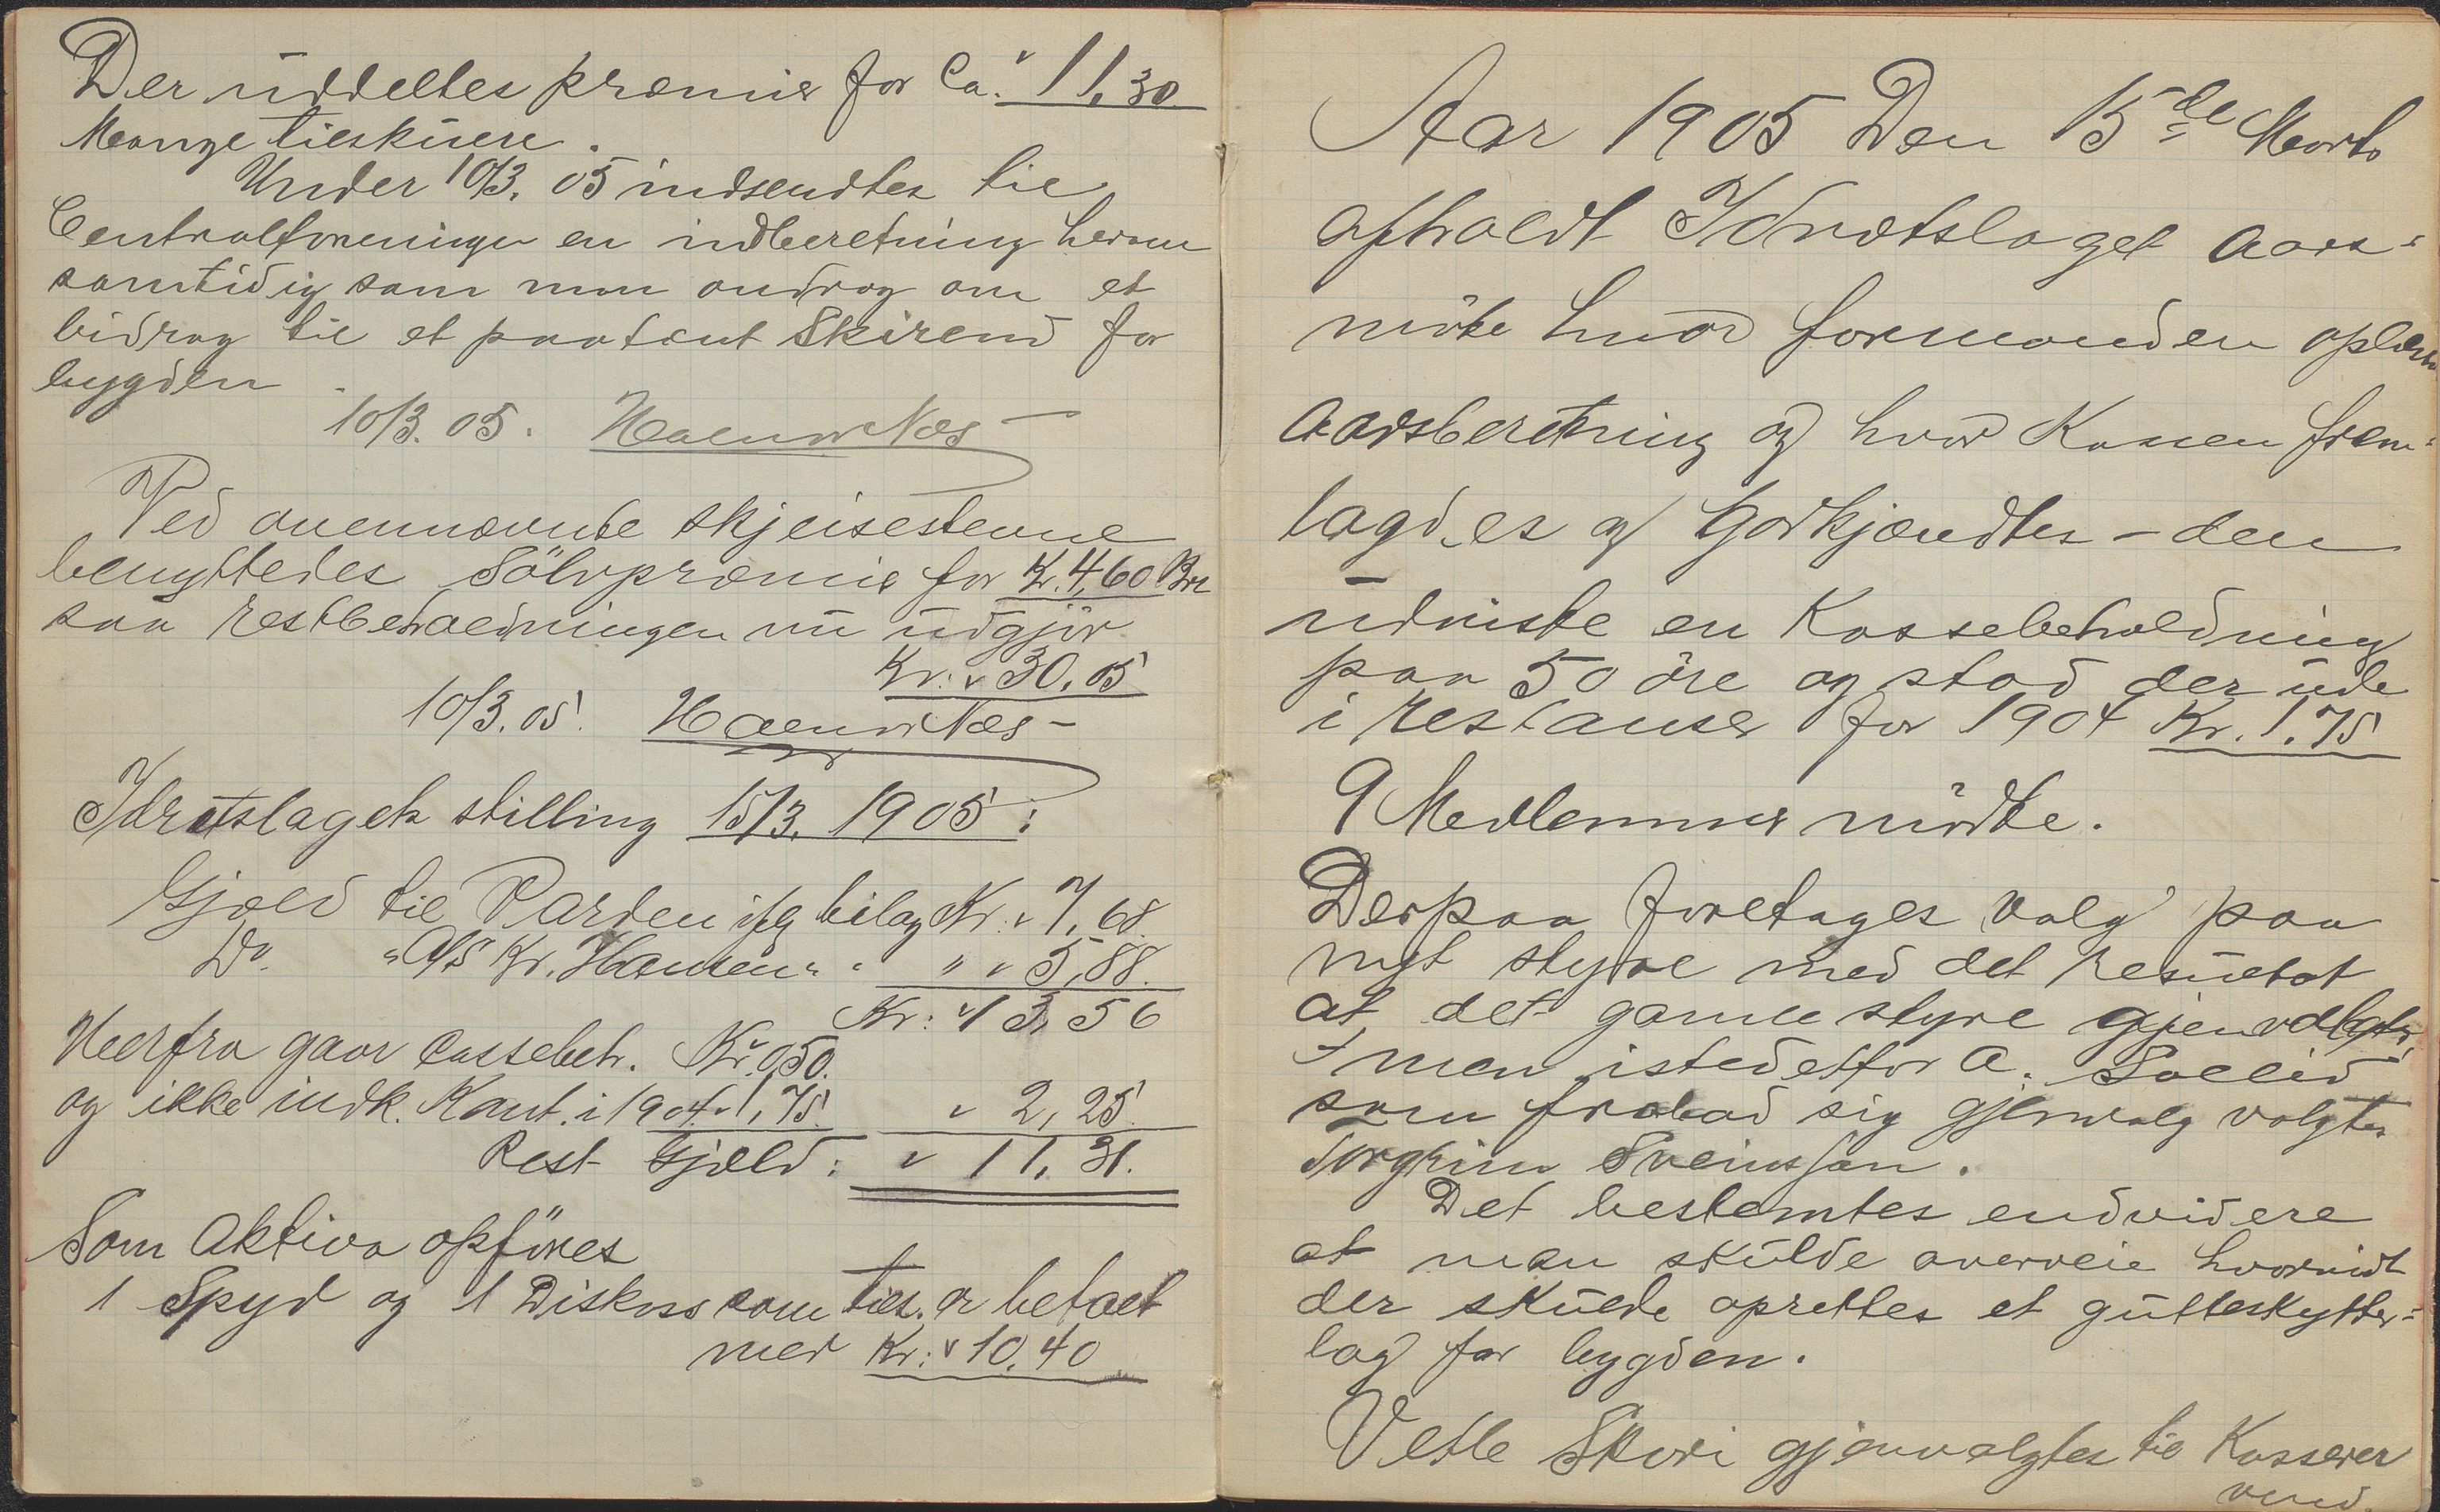 Der uddeltes præmier for Ca. 11,30
Mange tilskuere.
Under 10/3. 05 indsendtes til
Centralforeningen en indberetning herom
samtidig som man androg om et
bidrag til et paatænkt Skirend for
bygden.
10/3. 05.
Ved ovennævnte skjeisestevne
benyttedes Sölvpræmie for Kr. 4,60
saa restbeholdningen nu udgjör
Kr. 30,05
10/3. 05.
Idrætslagets stilling 15/3. 1905:
Gjæld til Varden ifg bilag Kr. " 7,68.
Do. " A/S Kr. Hansen " " " " 5,88.
Kr: " 13,56
Heerfra gaar Cassebeh. Kr. 0,50.
og ikke indk. Kont. i 1904 " 1,75. " 2,25.
Rest Gjæld: " 11,31.
Som Aktiva opföres
1 Spyd og 1 Diskos som tils. er betalt
med Kr: " 10,40
Aar 1905 Den 15de Marts
afholdt Idrætslaget aars-
möte hvor formanden oplæste
Aarsberetning og hvor Kassen frem-
lagdes og Godkjændtes - den
udviste en Kassebeholdning
paa 50 öre og stod der ude
i restanser for 1904 Kr. 1,75
9 Medlemmer mödte.
Derpaa foretages valg paa
nyt styre med det resultat
at det gamle styre gjenvalgtes
men istedetfor A. Solleid
som frabad sig gjenvalg valgtes
Torgrim Sveinsson.
Det bestemtes endvidere
at man skulde overveie hvorvidt
der skulde oprettes et gutteskytter-
lag for bygden.
Vetle Skori gjenvalgtes til Kasserer
vend.